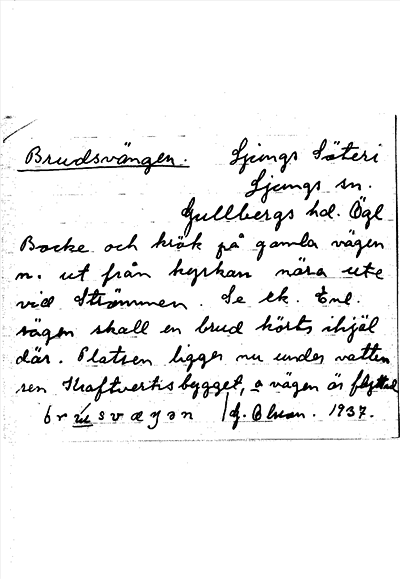 Brudsvängen. Ljungs Säteri
Ljungs sn.
Gullbergs hd. Ögl
Backe och krök på gamla vägen
n. ut från kyrkan nära ute
vid Strömmen. Se ek. Enl.
sägen skall en brud körts ihjäl
där. Platsen ligger nu under vatten
sen Kraftverksbygget, o vägen är flyttad
brusvæŋən / G. 1937.